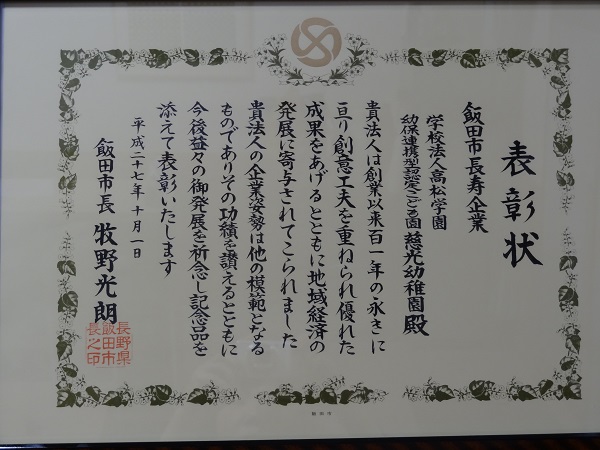 表彰状
飯田市長寿企業
学校法人高松学園
幼保連携型認定こども園 慈光幼稚園 殿
貴法人は創業以来百一年の永きに
亘り創意工夫を重ねられ優れた
成果をあげるとともに地域経済の
発展に寄与されてこられました
貴法人の企業姿勢は他の模範となる
ものでありその功績を讃えるとともに
今後益々の御発展を祈念し記念品を
添えて表彰いたします
平成二十七年十月一日
飯田市長 牧野光朗
長野県
飯田市
長之印
飯田市